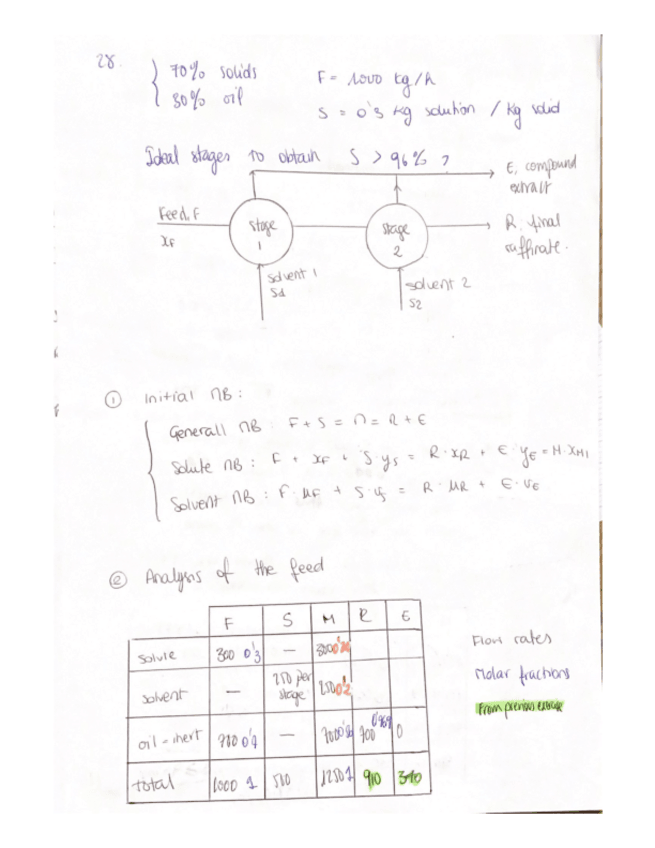 28.
70% solids
30% oil
F = 1000 kg/h
S = 0'3 kg solution / kg solid
Ideal stages to obtain S > 96% ?
E, compound
extract
Feed, F
XF
stage
1
stage
2
R, final
raffinate.
solvent 1
S1
solvent 2
S2
① Initial MB:
Generall MB: F + S = M = R + E
Solute MB: F + XF + S·yS = R·XR + E·yE = M·XM1
Solvent MB: F·MF + S·US = R·MR + E·UE
② Analysis of the feed
F S M R E
Solute 300 0'3 —
solvent — 250 per
stage 250 0'2
oil - inert 700 0'7 — 700 700 0
total 1000 1 500 1250 1 910 340
Flow rates
Molar fractions
From previous exercise